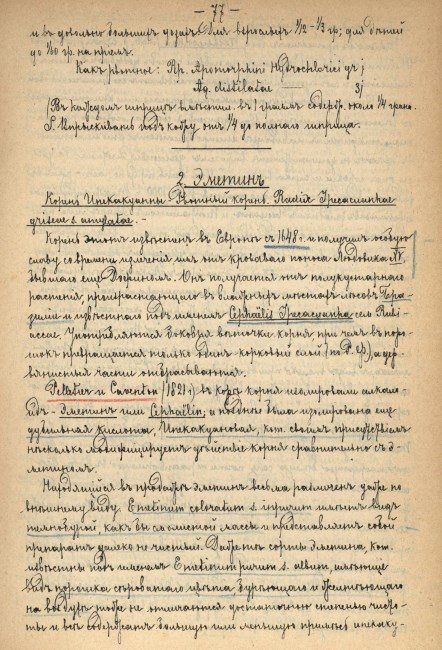 — 77 —
и въ довольно большихъ дозахъ. Для взрослыхъ 1/12 – 1/3 гр; для дѣтей
до 1/60 гр. на пріемъ.
Какъ рвотное: Rp. Apomorphini Hydrochlorici gr j
Aq. distillatae 3j
(Въ каждомъ шприцѣ вмѣстим. въ 1 граммъ содерж. около 1/4 грана.
S. Впрыскивать подъ кожу отъ 1/4 до полнаго шприца.
2. Эметинъ
Корень Ипекакуанны. Рвотный корень. Radix Ipecacuanhae
griseae s. amylatae. —
Корень этотъ извѣстенъ въ Европѣ съ 1648 г. и получилъ особую
славу со времени излеченія имъ отъ кроваваго поноса Людовика XIV,
бывшаго еще Дофиномъ. Онъ получается отъ полукустарнаго
растенія, произрастающаго въ влажныхъ мѣстахъ лѣсовъ Бра-
зиліи и извѣстнаго подъ именемъ Cephaëlis Ipecacuanha сем. Rubi-
aceae. Употребляются боковыя вѣточки корня при чемъ въ поро-
шокъ превращается только одинъ корковый слой (по Р. Ф.), а дер-
вянистыя части отбрасываются.
Pelletier и Caventou (1821 г.) въ корѣ корня изолировали алкало-
идъ – Эметинъ или Cephaëlin; и позднѣе была изолирована еще
дубильная кислота, Ипекакуановая, кот. своимъ присутствіемъ
нѣсколько модифицируетъ дѣйствіе корня сравнительно съ э-
метиномъ.
Находящійся въ продажѣ Эметинъ весьма различенъ уже по
внѣшнему виду. Emetinum coloratum s. impurum имѣетъ видъ
темнобурой, какъ бы смолистой массы и представляетъ собой
препаратъ далеко не чистый. Даже тѣ сорты Эметина, кот.
извѣстны подъ именемъ Emetinum purum s. album, имѣющіе
видъ порошка сѣроватаго цвѣта, бурѣющаго и желтѣющаго
на воздухѣ, тоже не отличаются достаточною степенью чисто-
ты и все содержатъ большую или меньшую примѣсь ипекаку-